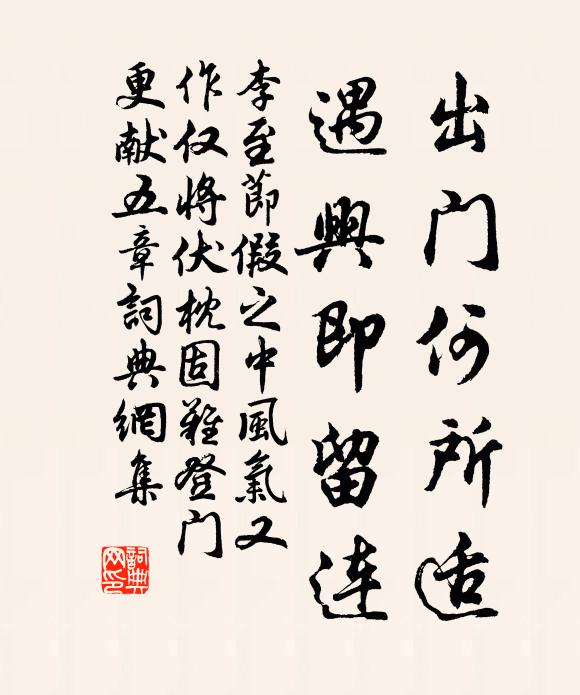 出门何所适
遇興即留连
李至節假之中風氣又
作仅將伏枕固難登门
更献五章詞典網集
詞典网印